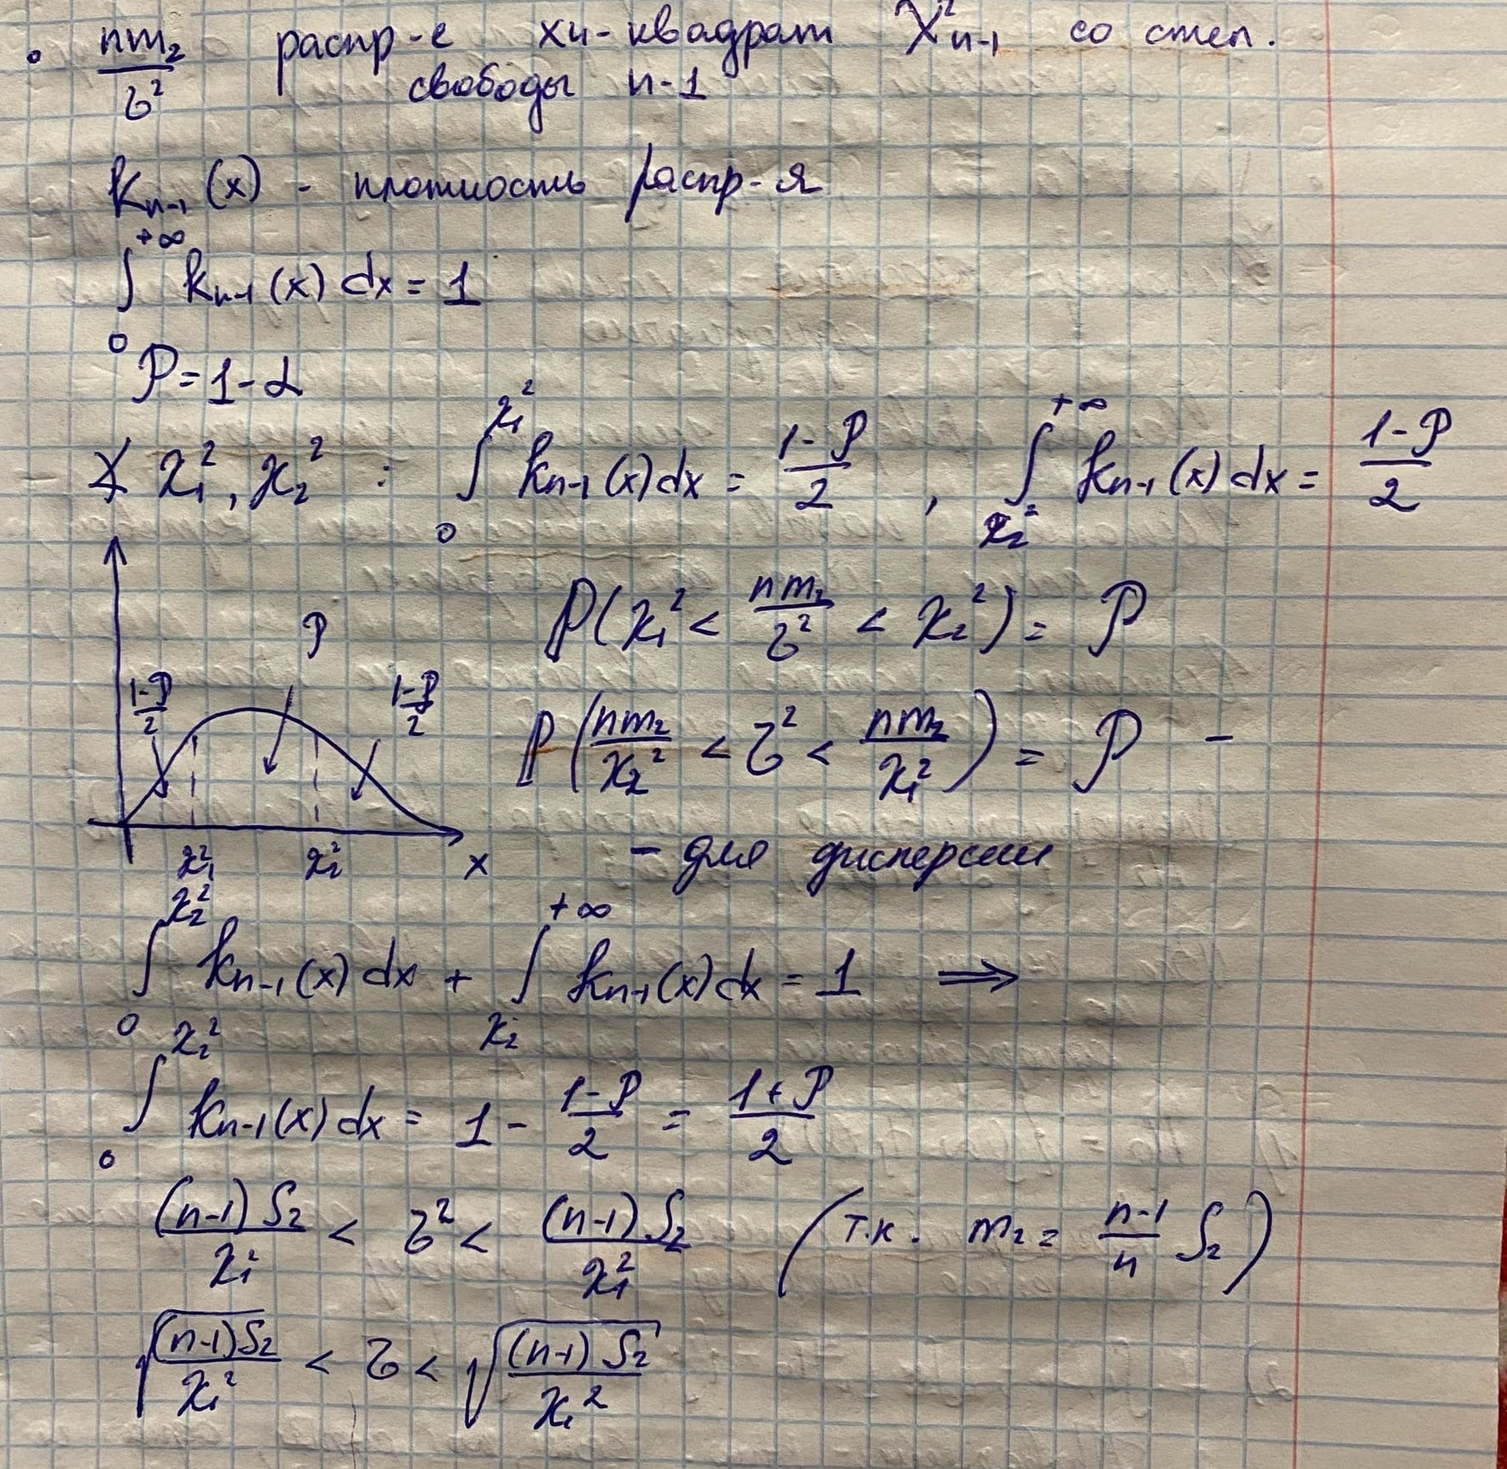 ∘ nm₂/σ² распр-е хи-квадрат χ²ₙ₋₁ со степ.
свободы n-1
kₙ₋₁(x) - плотность распр-я
∫₀^{+∞} kₙ₋₁(x) dx = 1
𝒫 = 1-α
∡ χ₁², χ₂² : ∫₀^{χ₁²} kₙ₋₁(x)dx = (1-𝒫)/2 , ∫_{χ₂²}^{+∞} kₙ₋₁(x)dx = (1-𝒫)/2
ℙ(χ₁² < nm₂/σ² < χ₂²) = 𝒫
𝒫
(1-𝒫)/2 (1-𝒫)/2
ℙ(nm₂/χ₂² < σ² < nm₂/χ₁²) = 𝒫 -
- для дисперсии
χ₁² χ₂² x
∫₀^{χ₂²} kₙ₋₁(x) dx + ∫_{χ₂}^{+∞} kₙ₋₁(x)dx = 1 ⟹
∫₀^{χ₂²} kₙ₋₁(x)dx = 1 - (1-𝒫)/2 = (1+𝒫)/2
(n-1)S₂/χ₁² < σ² < (n-1)S₂/χ₁² (т.к. m₂ = (n-1)/n S₂)
√((n-1)S₂/χ₁²) < σ < √((n-1)S₂/χ₁²)